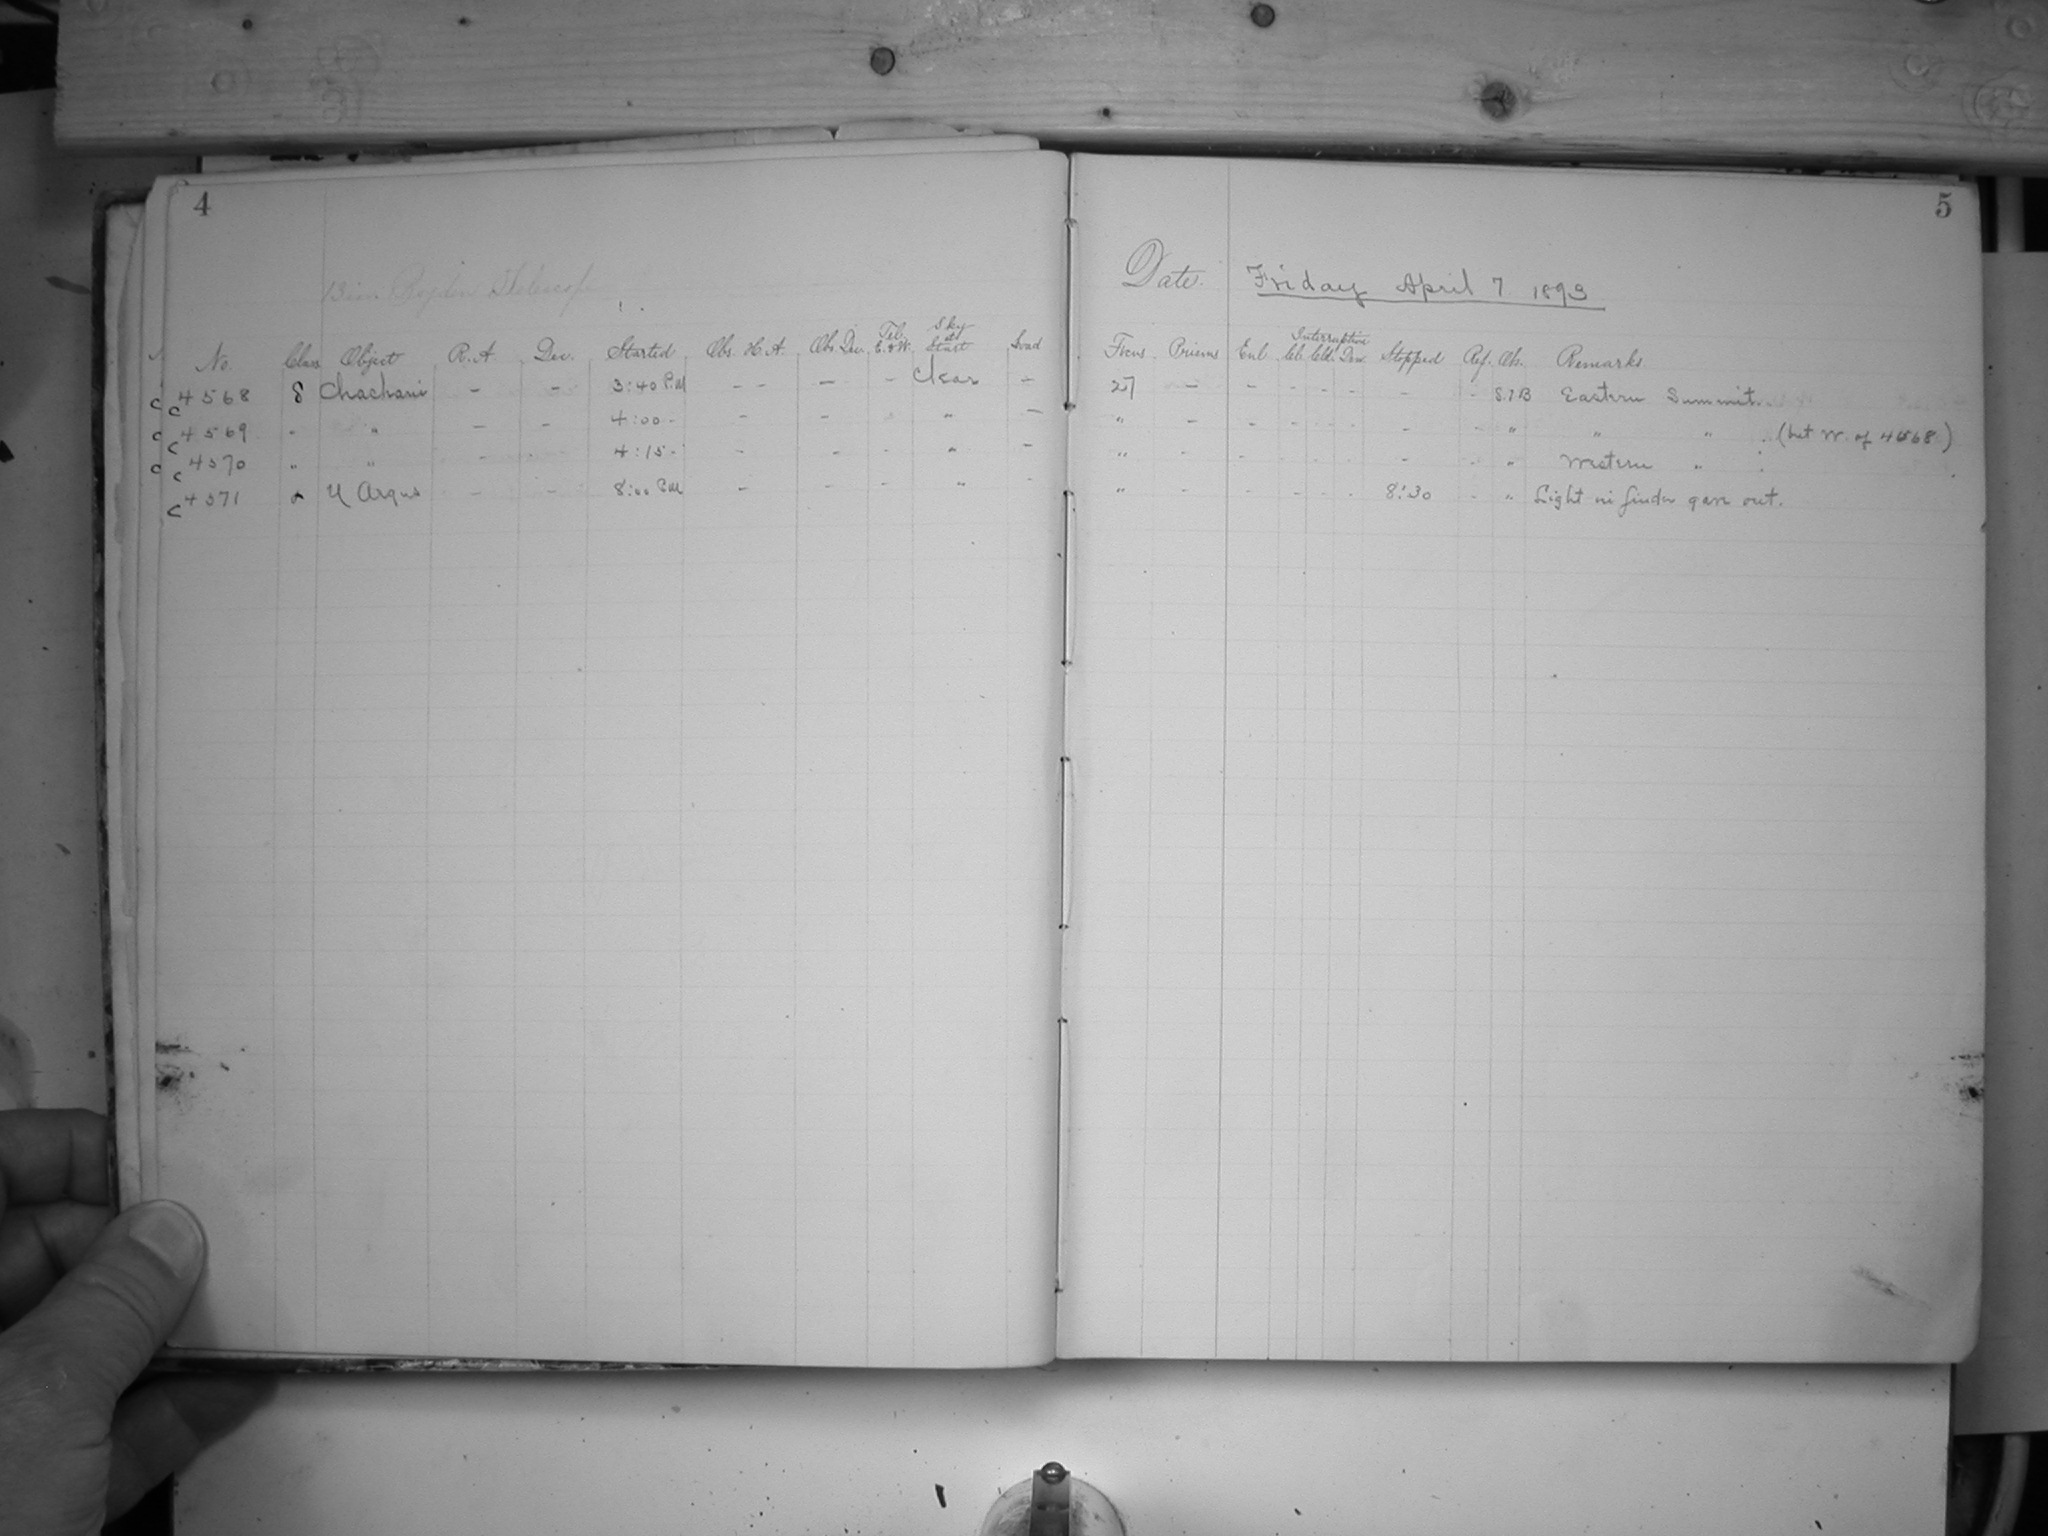 4
5
13 in. Boyden Telescope
Date. Friday April 7. 1893
No. Class Object R.A. Dec. Started Obs. H.A. Obs. Dec. Tel. E. or W. Sky at Start Focus Prisms Enl Interruption Cld. Dew. Stopped Ref. Ob. Remarks
C 4568 δ Chachani - - 3:40 P.M - - - - Clear - 27 - - - - - - - S.I.B Eastern Summit.
C 4569 " " - - 4:00 - - - " - " - - - - - - - " " " (but W. of 4568)
C 4570 " " - - 4:15 - - - - " - " - - - - - - - " Western "
C 4571 η Argus - - 8:00 P.M - - - " - " - - - - - 8:30 - " Light in finder gave out.